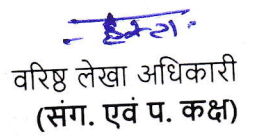 वरिष्ठ लेखा अधिकारी
(संग. एवं प. कक्ष)